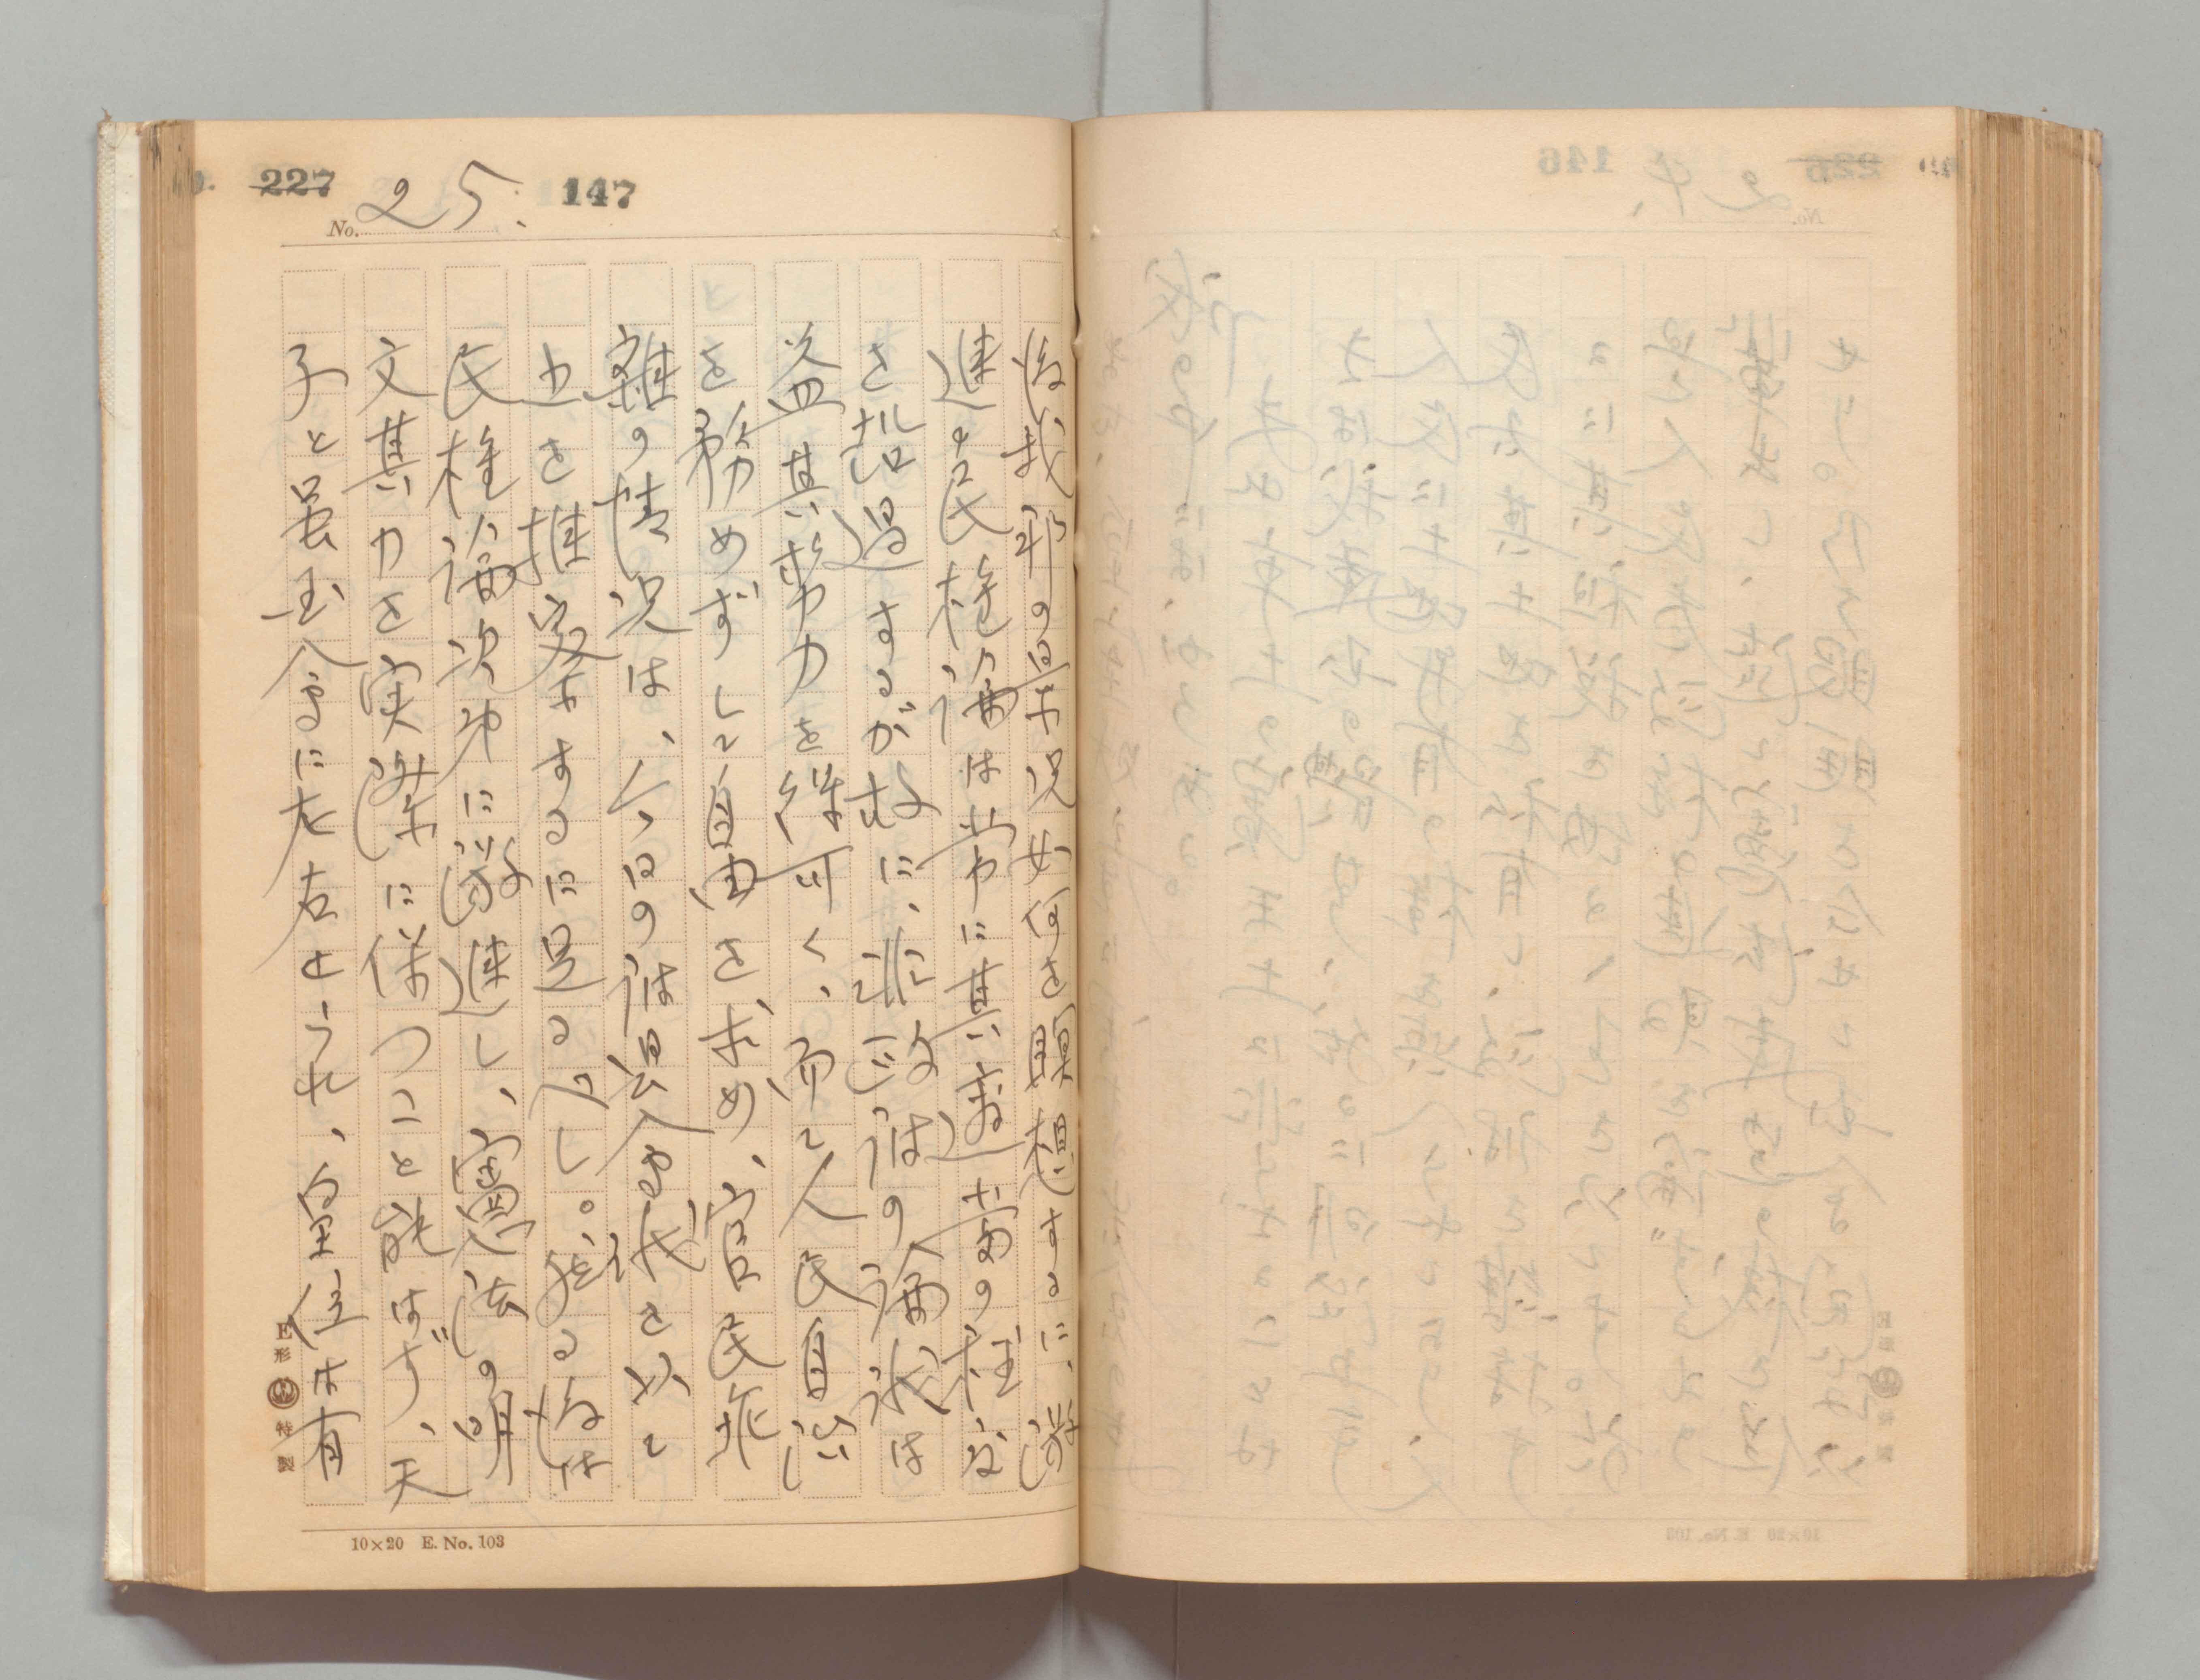 227 No. 25. 147
後我邦の景況如何をするに、漸
進の民権論は常に其適当の程度
を超過するが故に、非政府の論派は
益其勢力を得可く、而て人民自治
を務めずして自由を求め、官民乖
離の情況は、今日の県会を以て
之を推察するに足るべし。然る後は
民権論次第に漸進し、憲法の明
文其力を実際に保つこと能はず、天
子と雖も会に左右せられ、皇位は有
E形 特製
10×20 E. No. 103